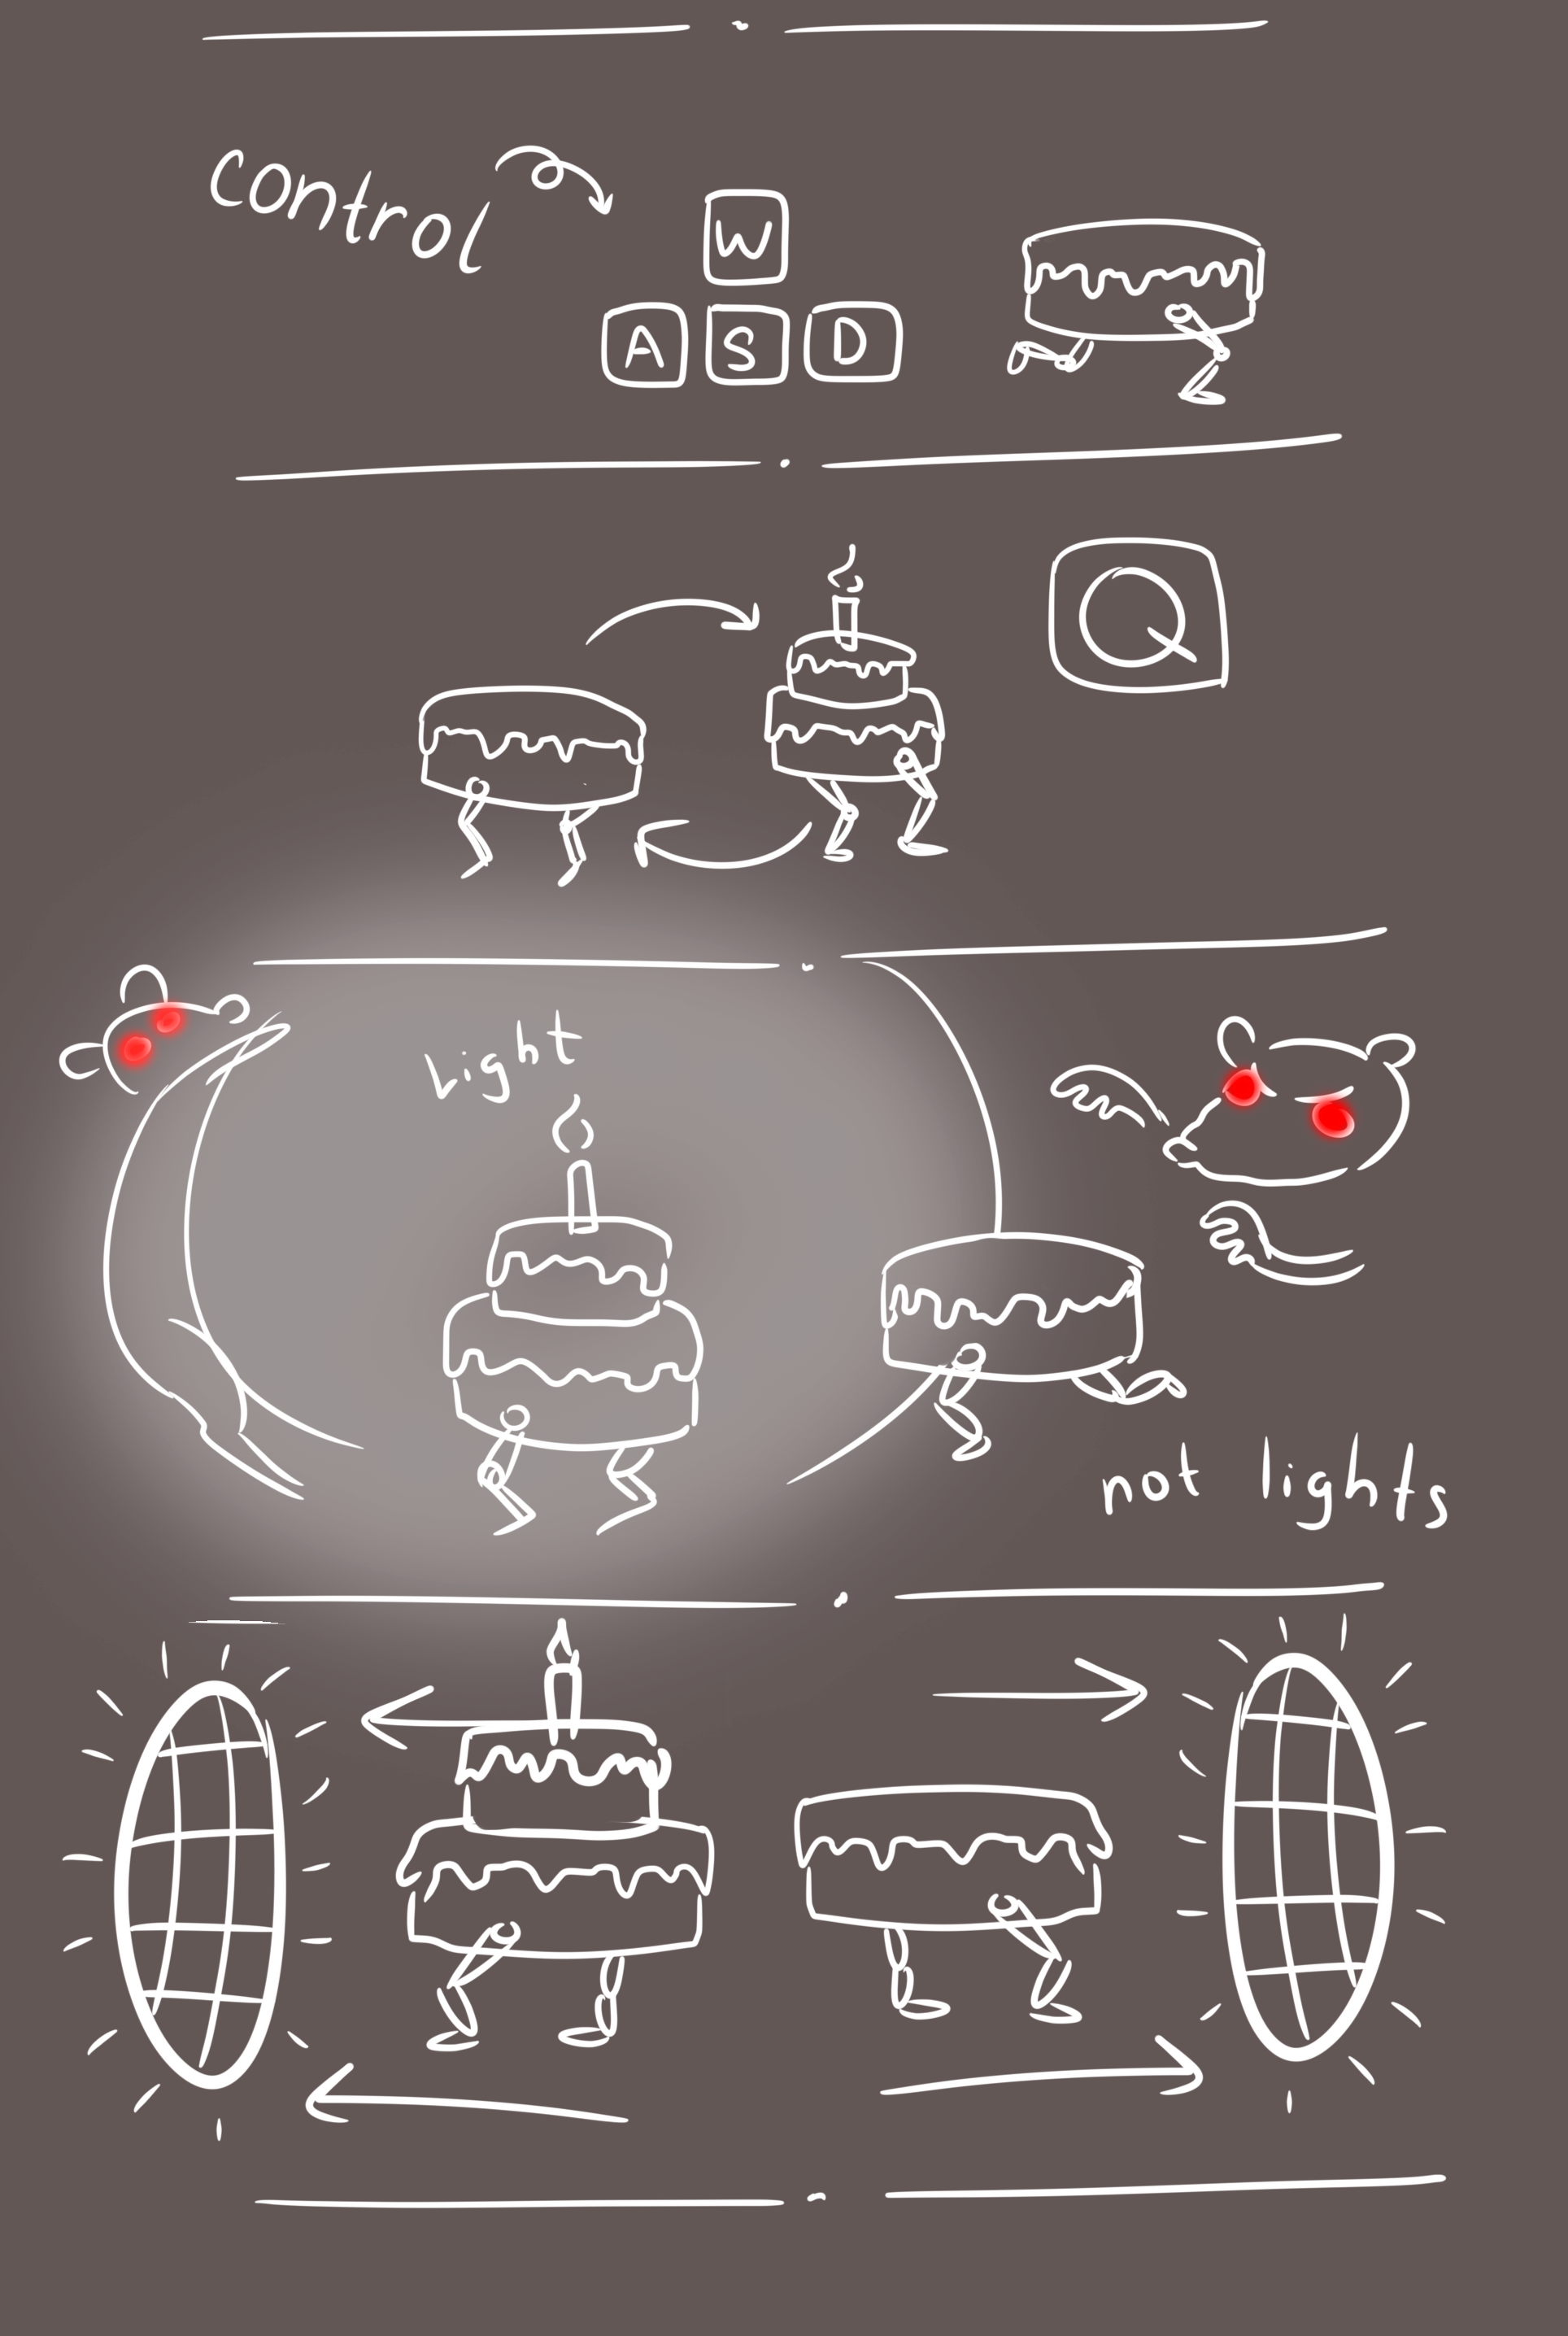 control
W
A S D
Q
light
not lights